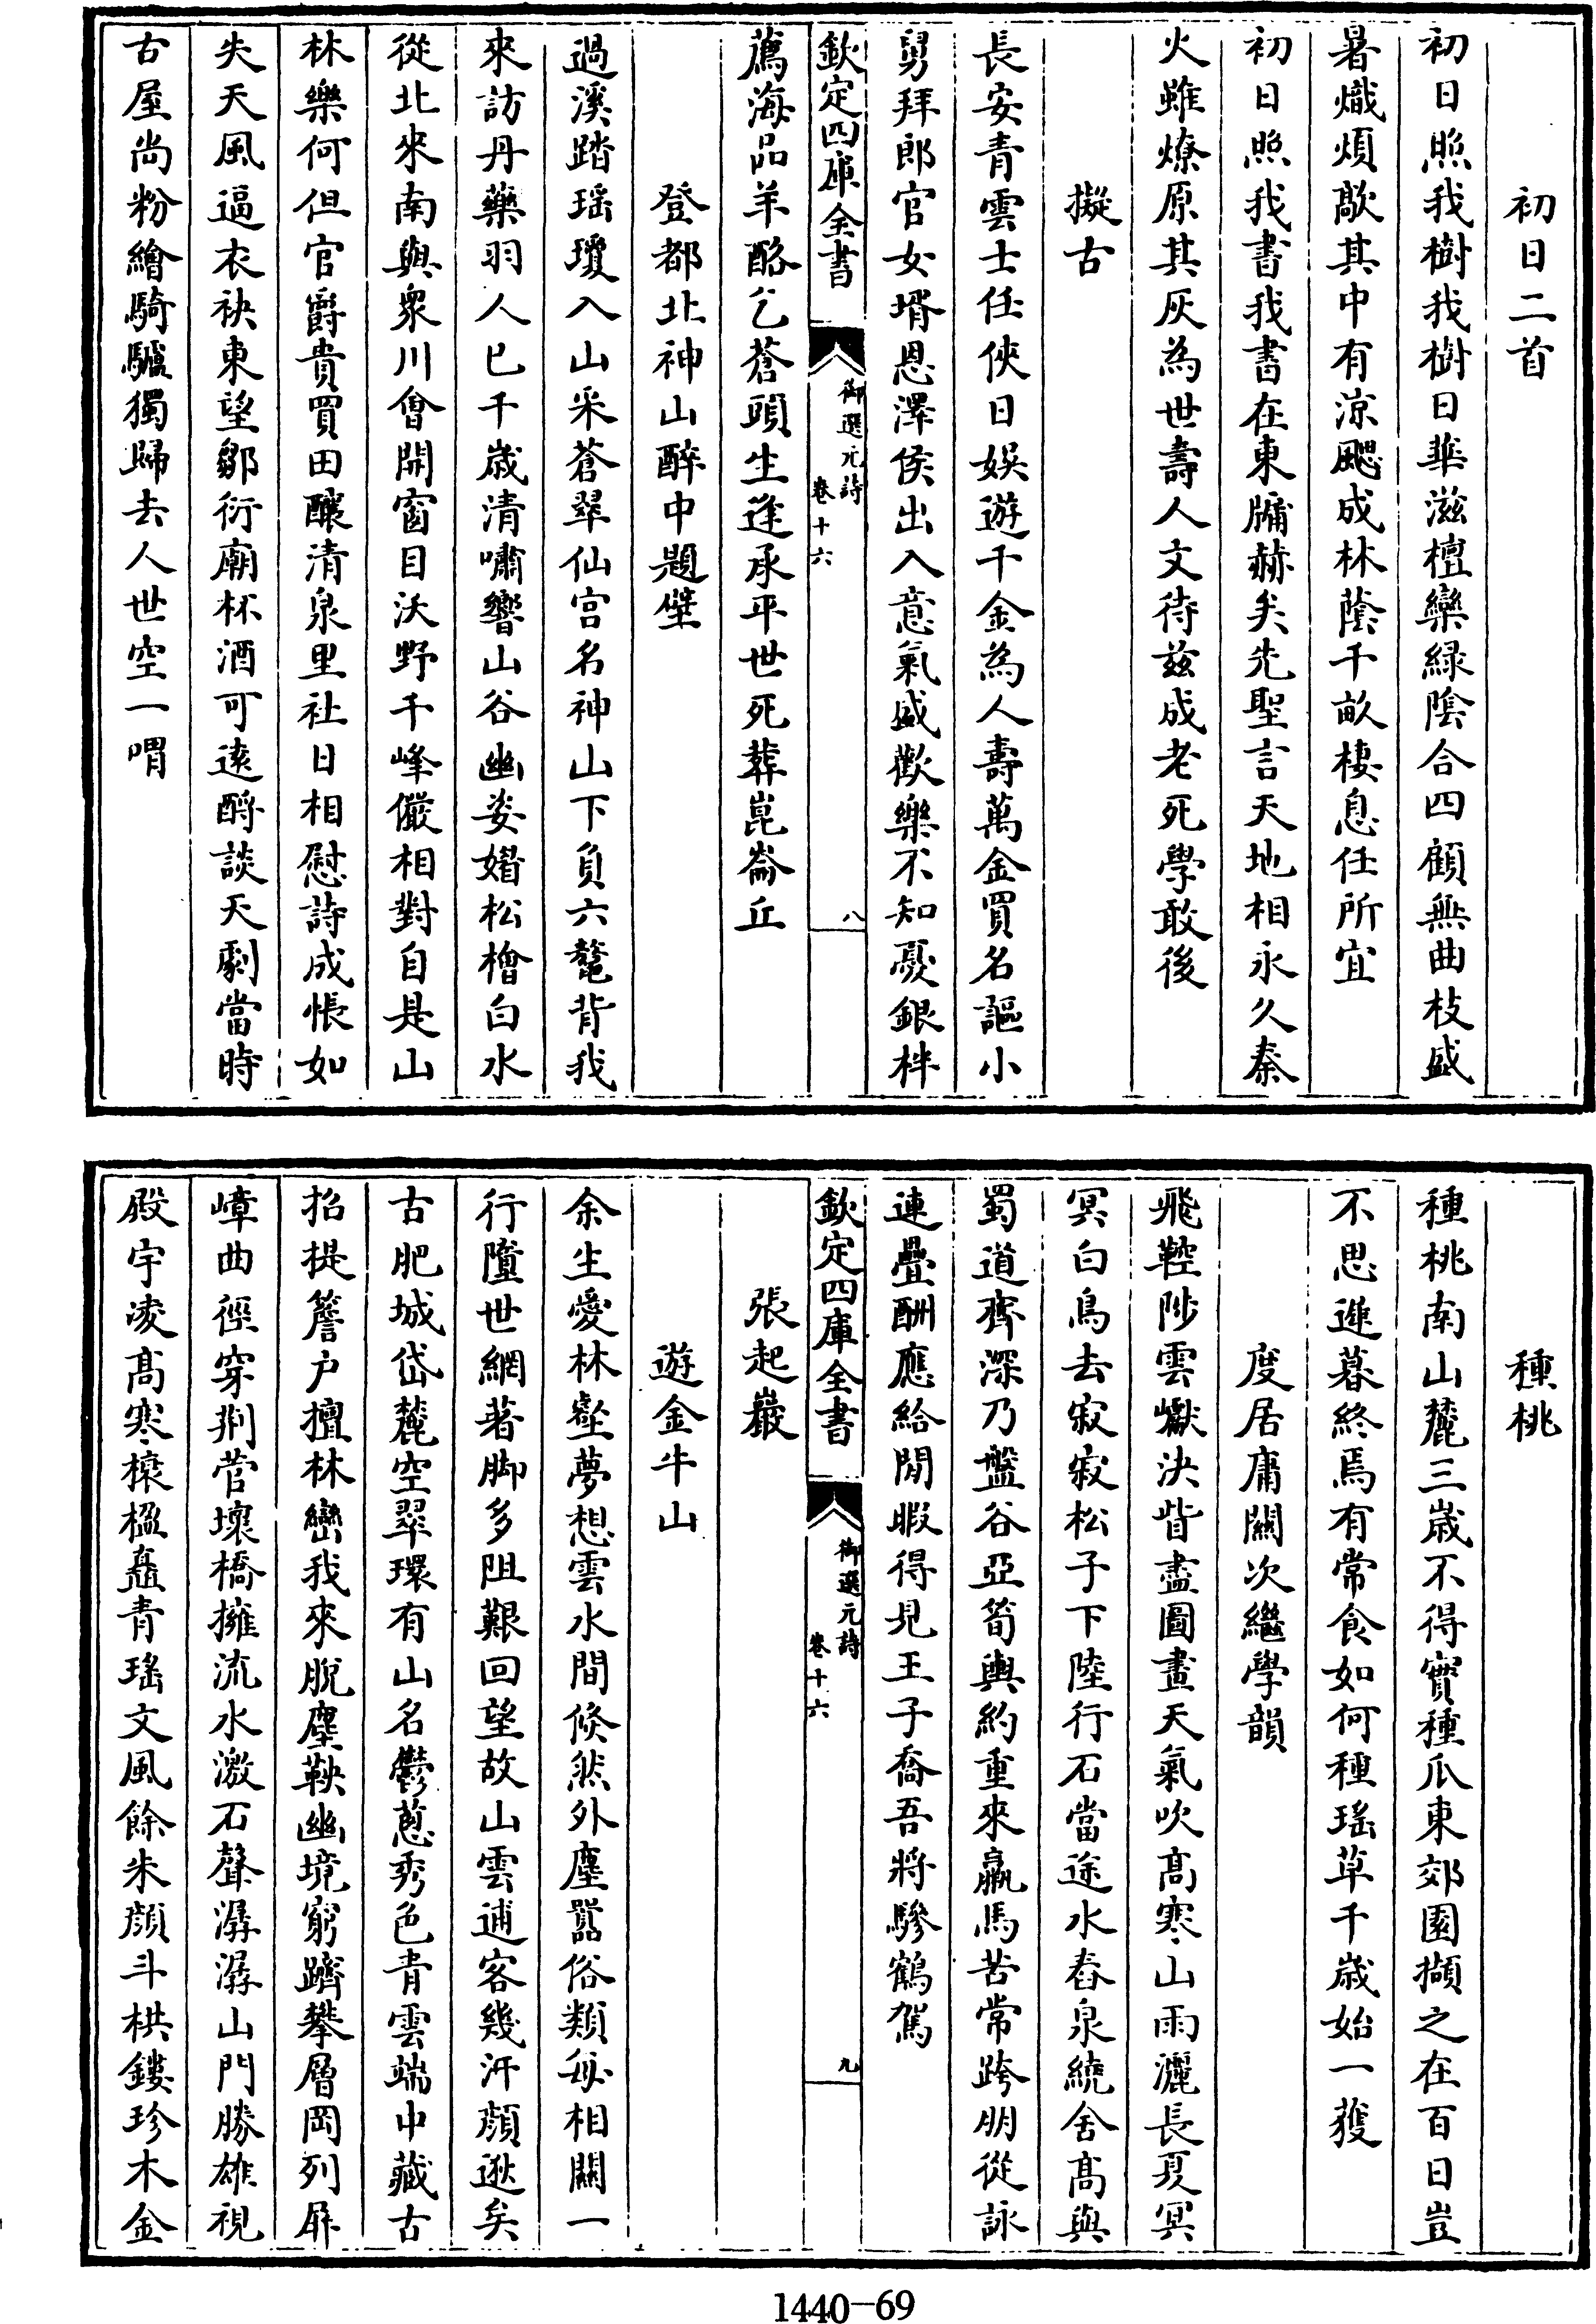 初日二首
初日照我樹我樹日華滋檀欒緑陰合四顧無曲枝盛
暑熾煩歊其中有涼颸成林蔭千畝棲息任所宜
初日照我書我書在東牖赫矣先聖言天地相永久秦
火雖燎原其灰為世壽人文待兹成老死學敢後
擬古
長安青雲士任俠日娯遊千金為人壽萬金買名謳小
舅拜郎官女壻恩澤侯出入意氣盛歡樂不知憂銀柈
欽定四庫全書
御選元詩
卷十六
八
薦海品羊酪乞蒼頭生逢承平世死葬崑崙丘
登都北神山醉中題壁
過溪踏瑶瓊入山采蒼翠仙宫名神山下負六鼇背我
來訪丹藥羽人已千歲清嘯響山谷幽姿媚松檜白水
從北來南與衆川會開窗目沃野千峰儼相對自是山
林樂何但官爵貴買田釀清泉里社日相慰詩成悵如
失天風逼衣袂東望鄒衍廟杯酒可遠酹談天劇當時
古屋尚粉繪騎驢獨歸去人世空一喟
種桃
種桃南山麓三歲不得實種瓜東郊園擷之在百日豈
不思遲暮終焉有常食如何種瑶草千歲始一獲
度居庸關次繼學韻
飛鞚陟雲巘決眥盡圖畫天氣吹高寒山雨灑長夏冥
冥白鳥去寂寂松子下陸行石當途水舂泉繞舍高與
蜀道齊深乃盤谷亞筍輿約重來羸馬苦常跨朋從詠
連疊酬應給閒暇得見王子喬吾將驂鶴駕
欽定四庫全書
御選元詩
卷十六
九
張起巖
遊金牛山
余生愛林壑夢想雲水間倐然外塵囂俗類毎相關一
行墮世網著脚多阻艱回望故山雲逋客幾汗顔逖矣
古肥城岱麓空翠環有山名鬱葱秀色青雲端中藏古
招提簷户擅林巒我來脫塵鞅幽境窮躋攀層岡列屏
嶂曲徑穿荆菅壞橋擁流水激石聲潺潺山門勝雄視
殿宇凌高寒榱楹矗青瑤文風餘朱顔斗栱鏤珍木金
1440-69